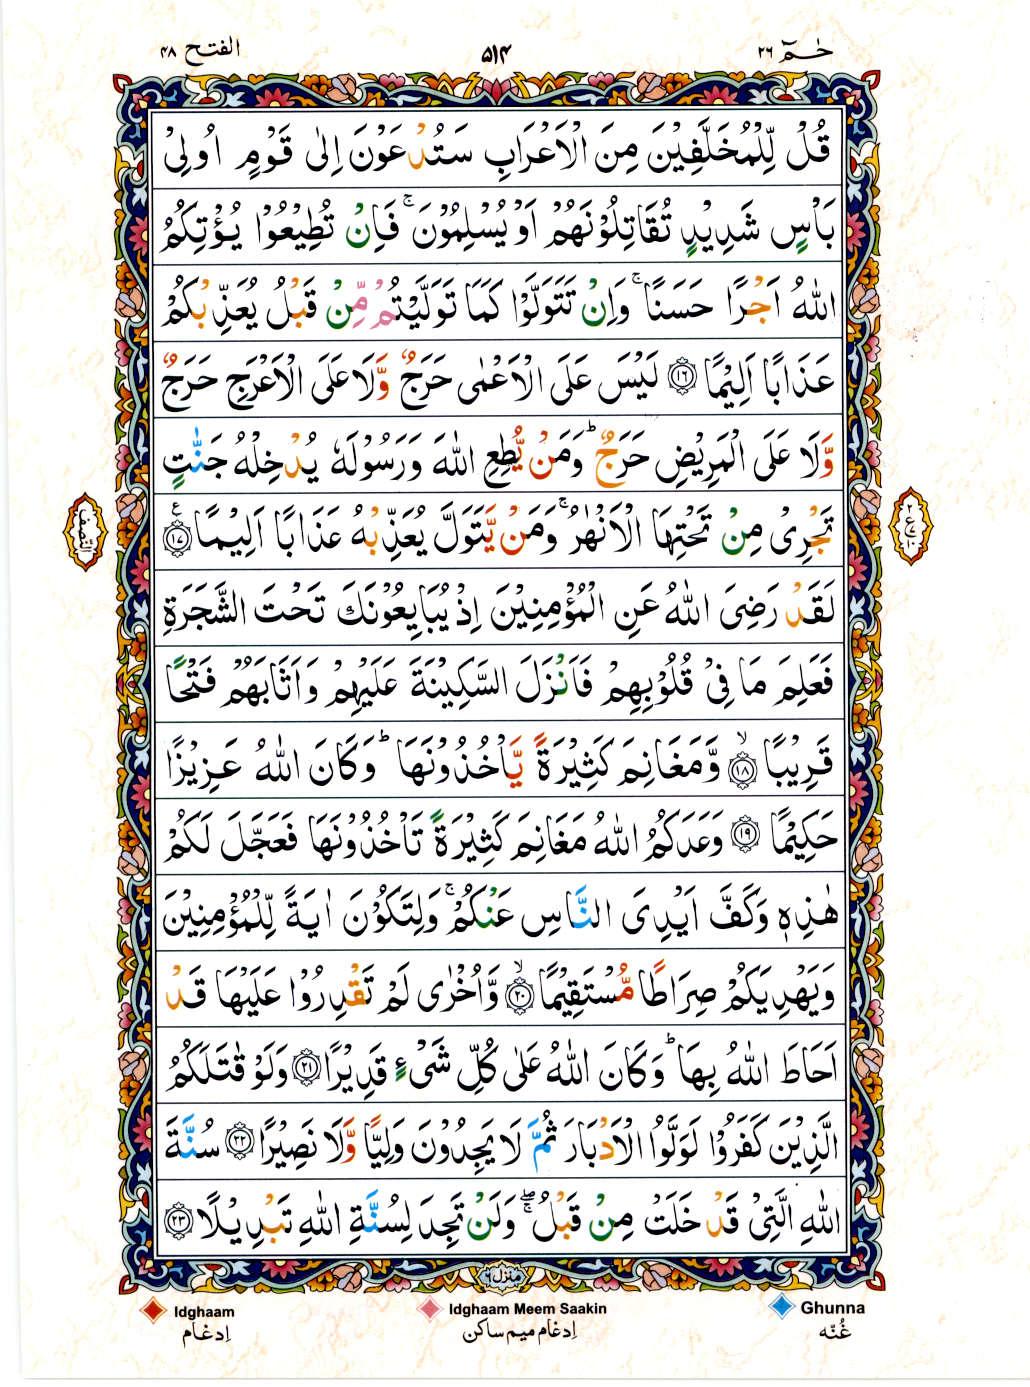 الفتح ٤٨
٥١٤
حٰمٓ ٢٦
قُلْ لِّلْمُخَلَّفِيْنَ مِنَ الْاَعْرَابِ سَتُدْعَوْنَ اِلٰى قَوْمٍ اُولِيْ
بَاْسٍ شَدِيْدٍ تُقَاتِلُوْنَهُمْ اَوْ يُسْلِمُوْنَ ۚ فَاِنْ تُطِيْعُوْا يُؤْتِكُمُ
اللّٰهُ اَجْرًا حَسَنًا ۚ وَاِنْ تَتَوَلَّوْا كَمَا تَوَلَّيْتُمْ مِّنْ قَبْلُ يُعَذِّبْكُمْ
عَذَابًا اَلِيْمًا ١٦ لَيْسَ عَلَى الْاَعْمٰى حَرَجٌ وَّلَا عَلَى الْاَعْرَجِ حَرَجٌ
وَّلَا عَلَى الْمَرِيْضِ حَرَجٌ ؕ وَمَنْ يُّطِعِ اللّٰهَ وَرَسُوْلَهٗ يُدْخِلْهُ جَنّٰتٍ
تَجْرِيْ مِنْ تَحْتِهَا الْاَنْهٰرُ ۚ وَمَنْ يَّتَوَلَّ يُعَذِّبْهُ عَذَابًا اَلِيْمًا ١٧ ع
لَقَدْ رَضِيَ اللّٰهُ عَنِ الْمُؤْمِنِيْنَ اِذْ يُبَايِعُوْنَكَ تَحْتَ الشَّجَرَةِ
فَعَلِمَ مَا فِيْ قُلُوْبِهِمْ فَاَنْزَلَ السَّكِيْنَةَ عَلَيْهِمْ وَاَثَابَهُمْ فَتْحًا
قَرِيْبًا ١٨ ۙ وَّمَغَانِمَ كَثِيْرَةً يَّاْخُذُوْنَهَا ؕ وَكَانَ اللّٰهُ عَزِيْزًا
حَكِيْمًا ١٩ وَعَدَكُمُ اللّٰهُ مَغَانِمَ كَثِيْرَةً تَاْخُذُوْنَهَا فَعَجَّلَ لَكُمْ
هٰذِهٖ وَكَفَّ اَيْدِيَ النَّاسِ عَنْكُمْ ۚ وَلِتَكُوْنَ اٰيَةً لِّلْمُؤْمِنِيْنَ
وَيَهْدِيَكُمْ صِرَاطًا مُّسْتَقِيْمًا ٢٠ ۙ وَّاُخْرٰى لَمْ تَقْدِرُوْا عَلَيْهَا قَدْ
اَحَاطَ اللّٰهُ بِهَا ؕ وَكَانَ اللّٰهُ عَلٰى كُلِّ شَيْءٍ قَدِيْرًا ٢١ وَلَوْ قٰتَلَكُمُ
الَّذِيْنَ كَفَرُوْا لَوَلَّوُا الْاَدْبَارَ ثُمَّ لَا يَجِدُوْنَ وَلِيًّا وَّلَا نَصِيْرًا ٢٢ سُنَّةَ
اللّٰهِ الَّتِيْ قَدْ خَلَتْ مِنْ قَبْلُ ۖۚ وَلَنْ تَجِدَ لِسُنَّةِ اللّٰهِ تَبْدِيْلًا ٢٣
النّصف
منزل ٦
Idghaam Idghaam Meem Saakin Ghunna
اِدغام اِدغام میم ساکن غُنّه